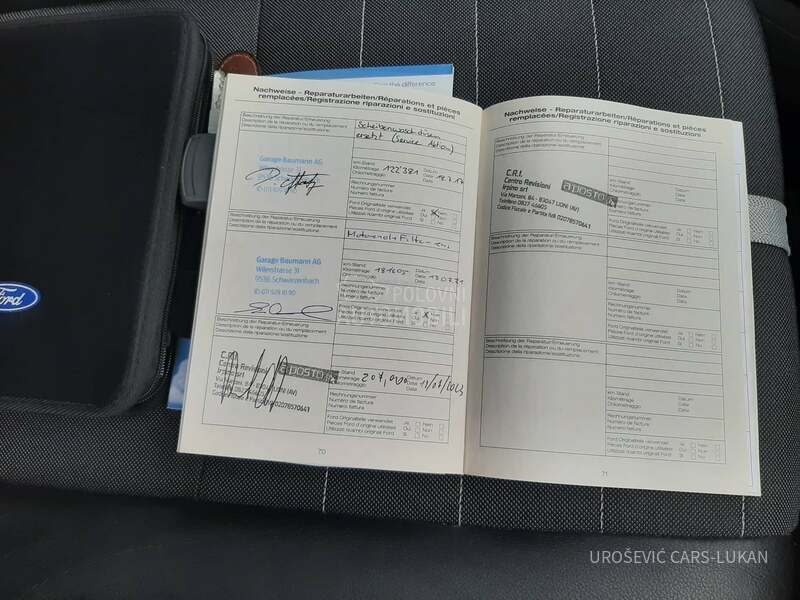 the difference
Nachweise - Reparaturarbeiten/Réparations et pièces
remplacées/Registrazione riparazioni e sostituzioni
Beschreibung der Reparatur/Erneuerung
Description de la réparation ou du remplacement
Descrizione della riparazione/sostituzione
Scheibenwaschdüsen
ersetzt (Service Aktion)
Garage Baumann AG
km-Stand
Kilométrage
Chilometraggio
122'381
Datum
Date
Data
Rechnungsnummer
Numéro de facture
Numero fattura
Ford Originalteile verwendet
Pièces Ford d'origine utilisées
Utilizzati ricambi originali Ford
Ja Nein
Oui Non
Si No
Beschreibung der Reparatur/Erneuerung
Description de la réparation ou du remplacement
Descrizione della riparazione/sostituzione
Garage Baumann AG
Wilenstrasse 31
km-Stand
Kilométrage
Datum
Date
Data
Rechnungsnummer
Numéro de facture
Numero fattura
Ford Originalteile verwendet
Pièces Ford d'origine utilisées
Utilizzati ricambi originali Ford
POLOVNI
Beschreibung der Reparatur/Erneuerung
Description de la réparation ou du remplacement
Descrizione della riparazione/sostituzione
C.R.I.
Centro Revisioni
Irpino srl
km-Stand
Kilométrage
Chilometraggio
Datum
Date
Data
Rechnungsnummer
Numéro de facture
Numero fattura
Ford Originalteile verwendet
Pièces Ford d'origine utilisées
Utilizzati ricambi originali Ford
Ja Nein
Oui Non
Si No
70
Nachweise - Reparaturarbeiten/Réparations et pièces
remplacées/Registrazione riparazioni e sostituzioni
Beschreibung der Reparatur/Erneuerung
Description de la réparation ou du remplacement
Descrizione della riparazione/sostituzione
C.R.I.
Centro Revisioni
Irpino srl
Via Marconi, 84 - 83047 LIONI (AV)
Telefono 0827 46605
Codice Fiscale e Partita IVA 02078570641
A POSTO
km-Stand
Kilométrage
Chilometraggio
Datum
Date
Data
Rechnungsnummer
Numéro de facture
Numero fattura
Ford Originalteile verwendet
Pièces Ford d'origine utilisées
Utilizzati ricambi originali Ford
Ja Nein
Oui Non
Si No
Beschreibung der Reparatur/Erneuerung
Description de la réparation ou du remplacement
Descrizione della riparazione/sostituzione
km-Stand
Kilométrage
Chilometraggio
Datum
Date
Data
Rechnungsnummer
Numéro de facture
Numero fattura
Ford Originalteile verwendet
Pièces Ford d'origine utilisées
Utilizzati ricambi originali Ford
Ja Nein
Oui Non
Si No
Beschreibung der Reparatur/Erneuerung
Description de la réparation ou du remplacement
Descrizione della riparazione/sostituzione
km-Stand
Kilométrage
Chilometraggio
Datum
Date
Data
Rechnungsnummer
Numéro de facture
Numero fattura
Ford Originalteile verwendet
Pièces Ford d'origine utilisées
Utilizzati ricambi originali Ford
Ja Nein
Oui Non
Si No
71
Ford
UROŠEVIĆ CARS-LUKAN